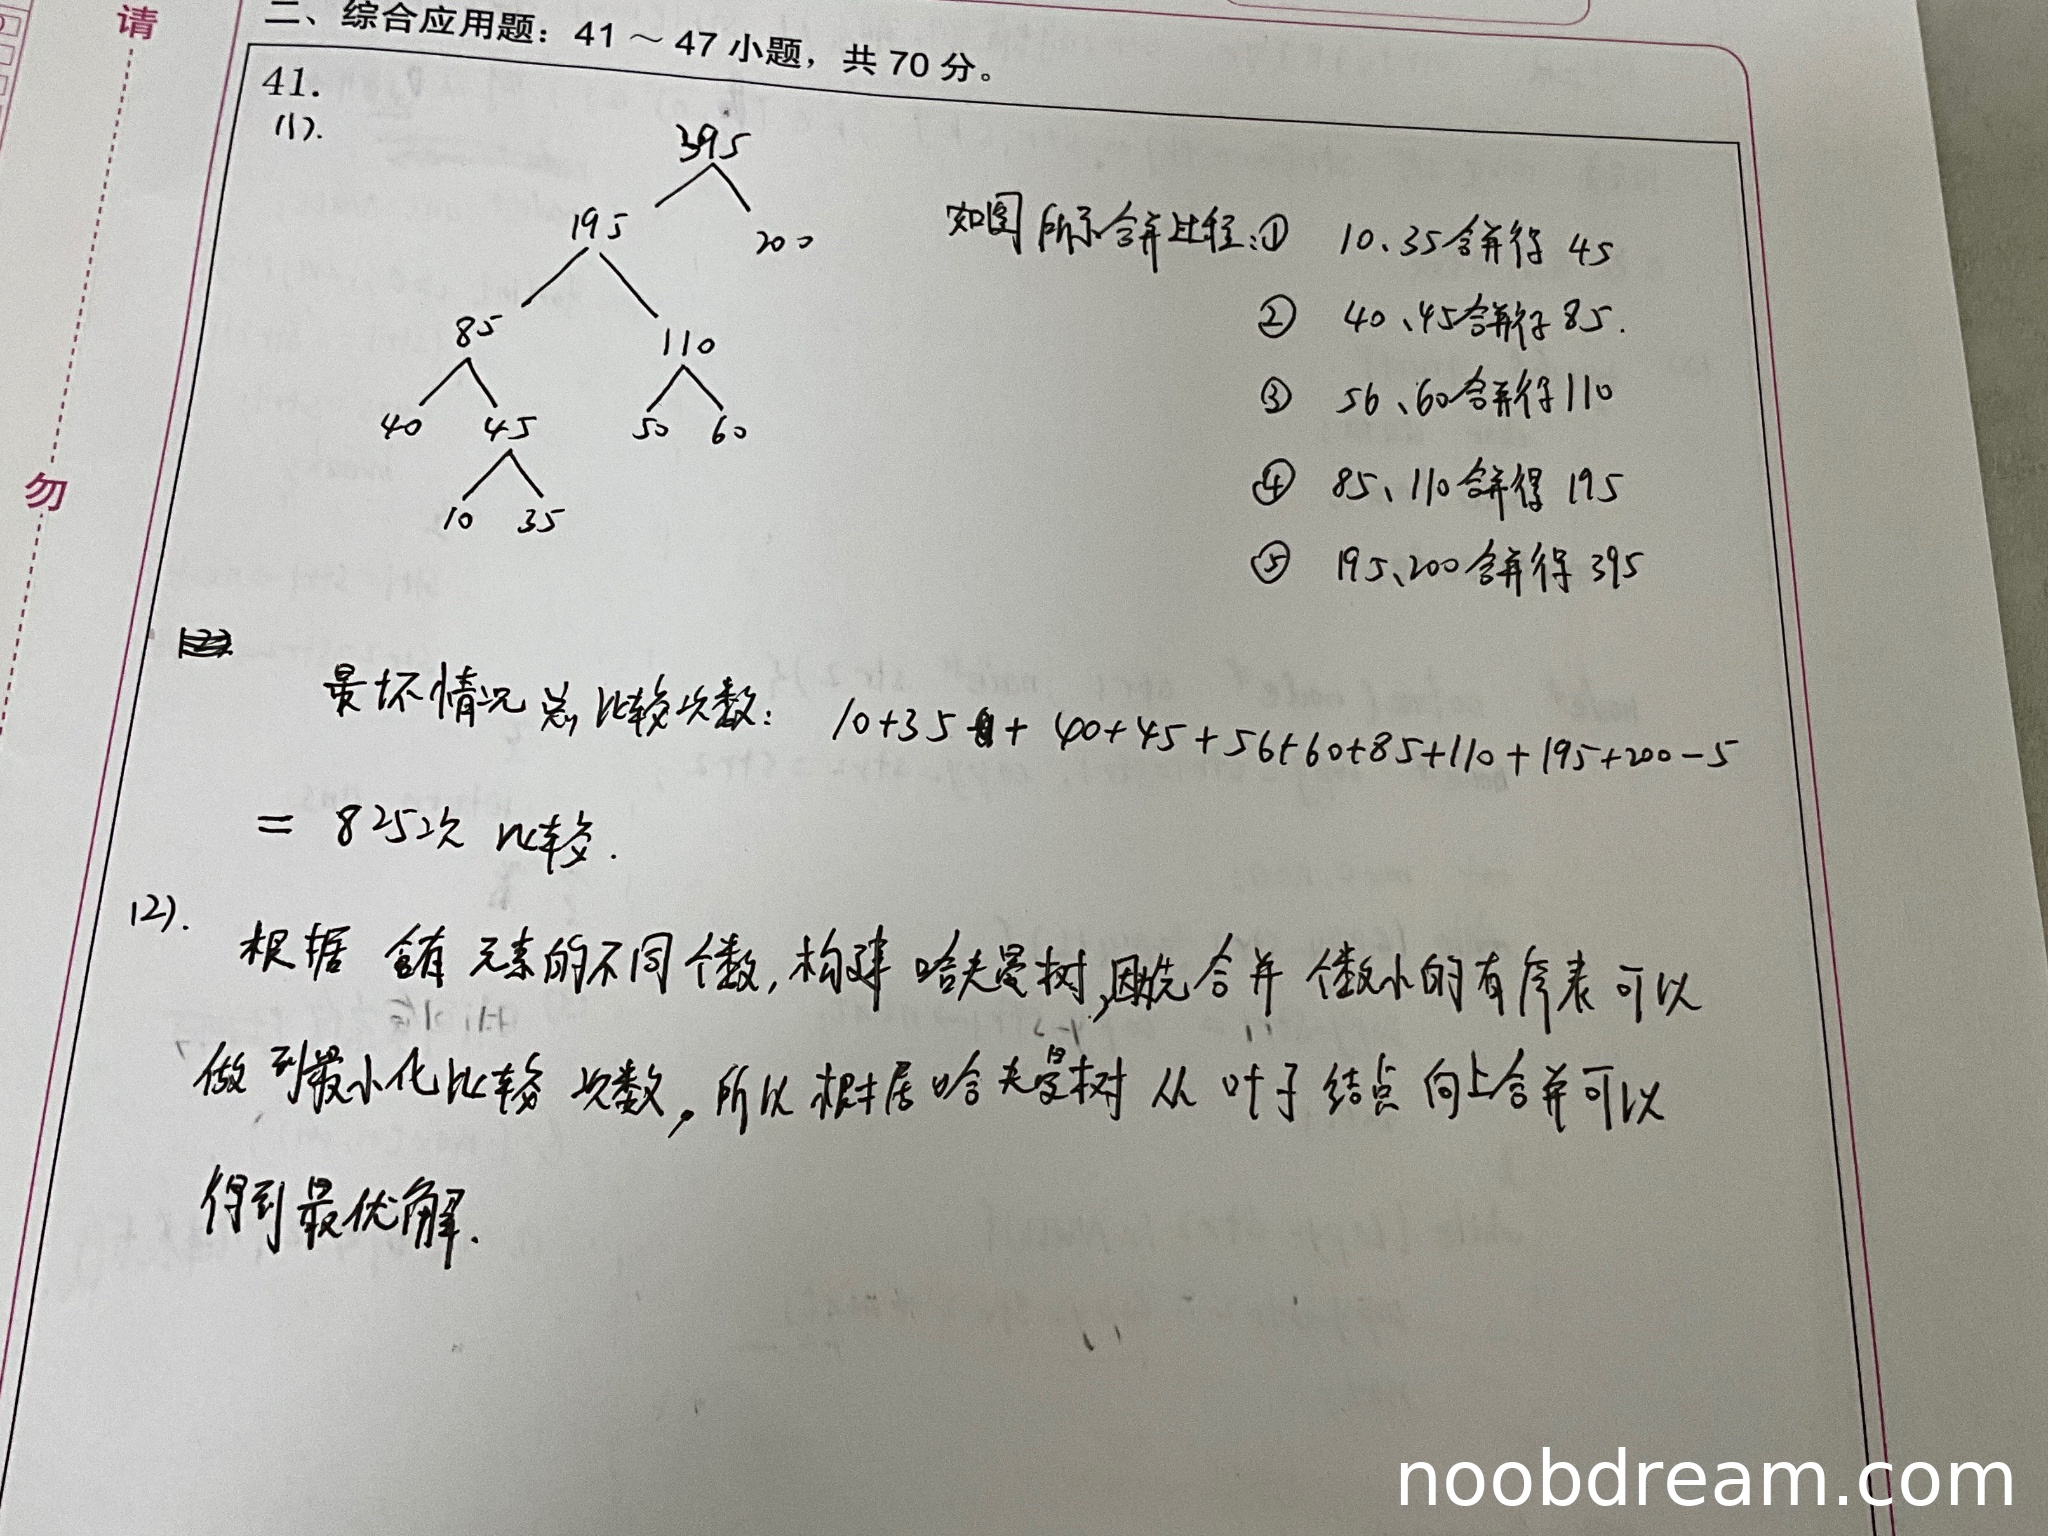 请
勿
二、综合应用题：41～47小题，共70分。
41.
(1).
395
195 200
85 110
40 45 50 60
10 35
如图所示合并过程：① 10、35合并得 45
② 40、45合并得 85.
③ 56、60合并得110
④ 85、110合并得 195
⑤ 195、200合并得 395
最坏情况总比较次数： 10+35 + 40+45+56+60+85+110+195+200-5
= 825次 比较.
(2).
根据 含有 元素的不同个数，构建 哈夫曼树，因先合并 个数小的有序表 可以
做到最小化比较 次数，所以根据哈夫曼树 从 叶子 结点 向上合并可以
得到最优解.
noobdream.com